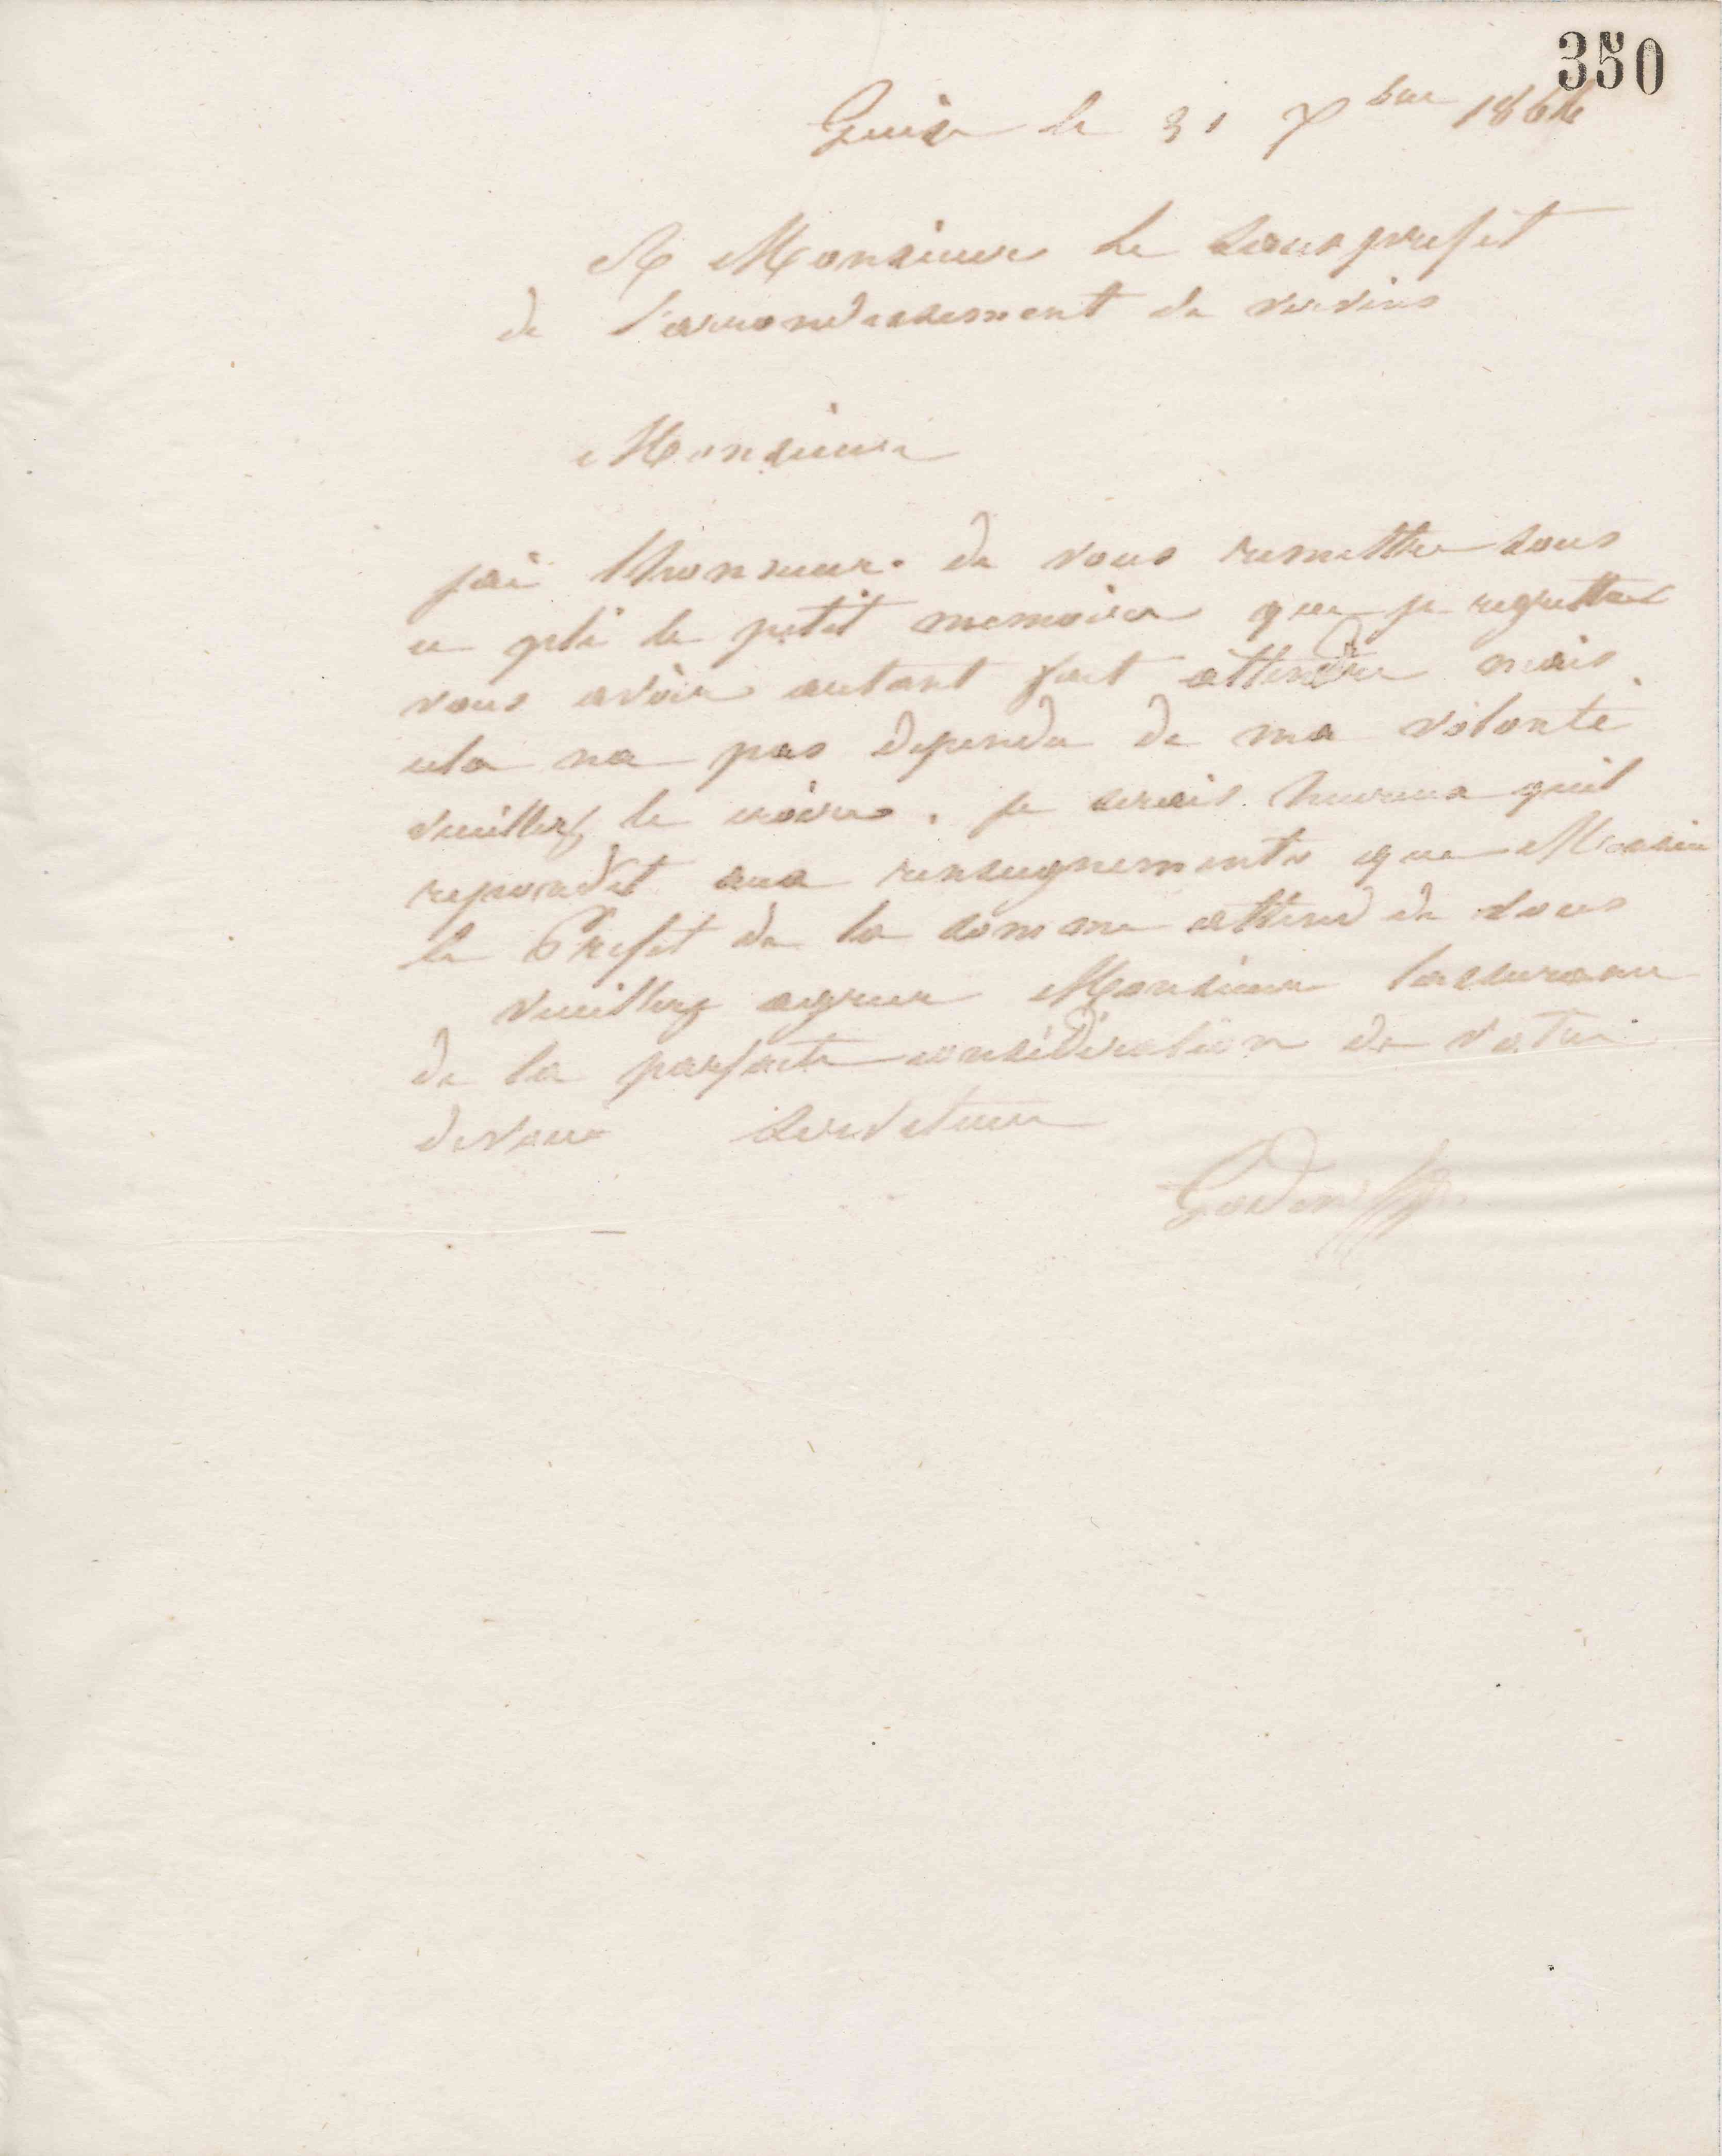 350
Guise le 31 Xbre 1866
A Monsieur le Sous prefet
de l'arrondissement de vervins
Monsieur
jai lhonneur de vous remettre sous
ce pli le petit memoire que je regrette
vous avoir autant fait attendre mais
cela na pas dependu de ma volonté
veuillez le croire. je serais heureux quil
repondit aux renseignements que Monsieu
le Prefet de la somme attend de vous
veuillez agreer Monsieur lassurance
de la parfaite considération de votre
devoué serviteur
Godin